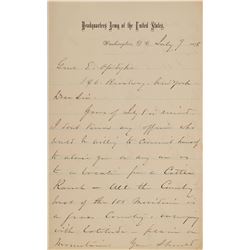 Headquarters Army of the United States,
Washington, D.C. July 9, 18
Genl E. Opdyke
Broadway New York
Dear Sir,
Yours of July 8 is received.
I don't know any officer who
would be willing to commit himself
to advise you or any one as
to a location for a Cattle
Ranch or All the Country
west of the 100 Meridian is
a grass Country - varying
with Latitude, plain or
Mountain. You should